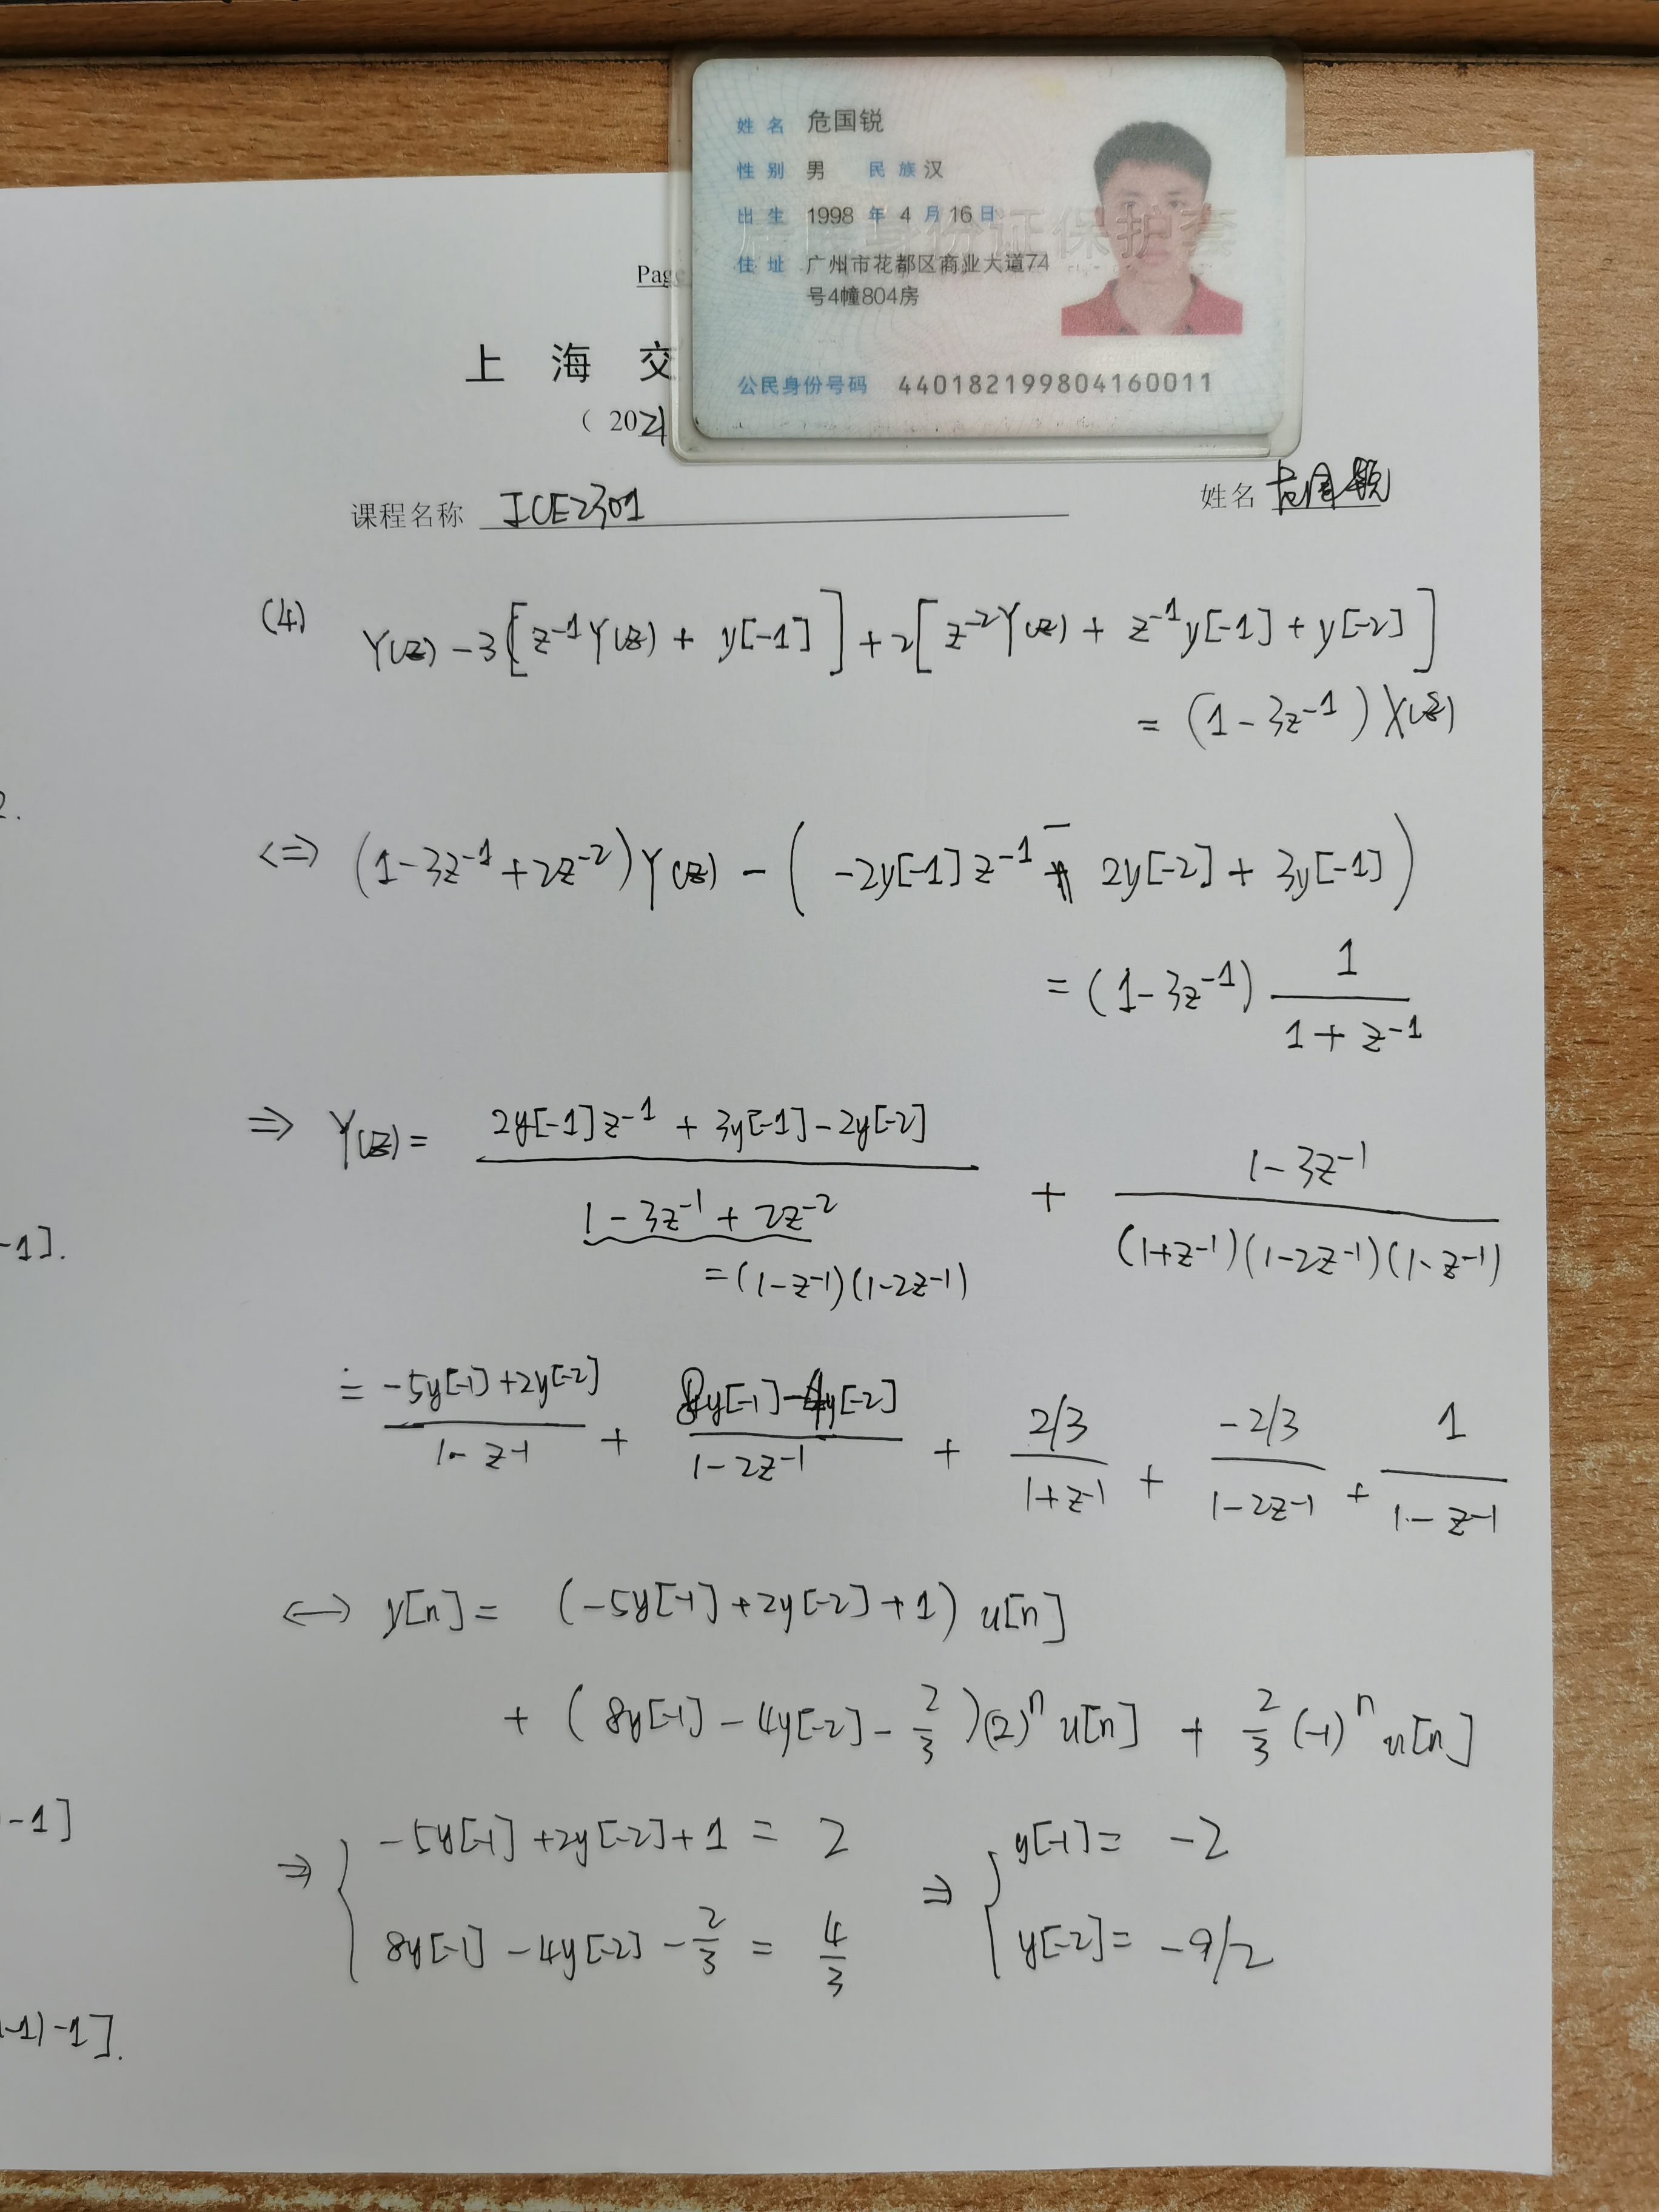 姓名 危国锐
性别 男 民族 汉
出生 1998 年 4 月 16 日
居民身份证保护套
住址 广州市花都区商业大道74
号4幢804房
公民身份号码 440182199804160011
Pag
上 海 交
( 2021
课程名称 ICE2301
姓名 危国锐
(4) Y(z) - 3[z⁻¹Y(z) + y[-1]] + 2[z⁻²Y(z) + z⁻¹y[-1] + y[-2]]
= (1 - 3z⁻¹) X(z)
2.
<=> (1 - 3z⁻¹ + 2z⁻²)Y(z) - (-2y[-1]z⁻¹ - 2y[-2] + 3y[-1])
= (1 - 3z⁻¹) 1/(1 + z⁻¹)
⇒ Y(z) = (2y[-1]z⁻¹ + 3y[-1] - 2y[-2])/(1 - 3z⁻¹ + 2z⁻²) + (1 - 3z⁻¹)/((1+z⁻¹)(1-2z⁻¹)(1-z⁻¹))
-1].
= (1-z⁻¹)(1-2z⁻¹)
= (-5y[-1] + 2y[-2])/(1 - z⁻¹) + (8y[-1] - 4y[-2])/(1 - 2z⁻¹) + (2/3)/(1+z⁻¹) + (-2/3)/(1-2z⁻¹) + 1/(1-z⁻¹)
↔ y[n] = (-5y[-1] + 2y[-2] + 1) u[n]
+ (8y[-1] - 4y[-2] - 2/3)(2)ⁿ u[n] + 2/3 (-1)ⁿ u[n]
-1]
⇒ { -5y[-1] + 2y[-2] + 1 = 2 ⇒ { y[-1] = -2
8y[-1] - 4y[-2] - 2/3 = 4/3 y[-2] = -9/2
-1)-1].